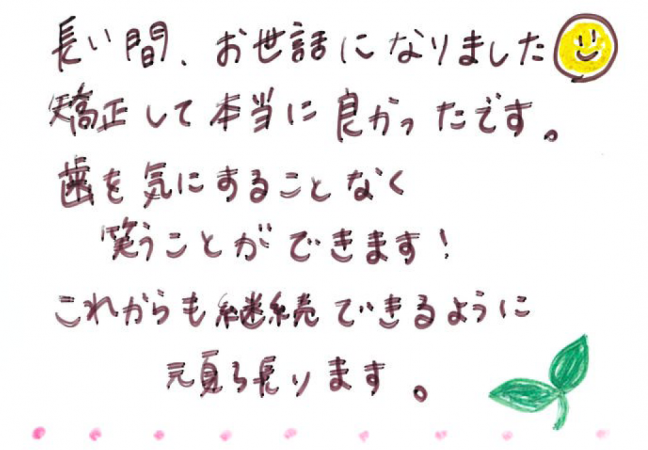 長い間、お世話になりました
矯正して本当に良かったです。
歯を気にすることなく
笑うことができます!
これからも継続できるように
頑張ります。